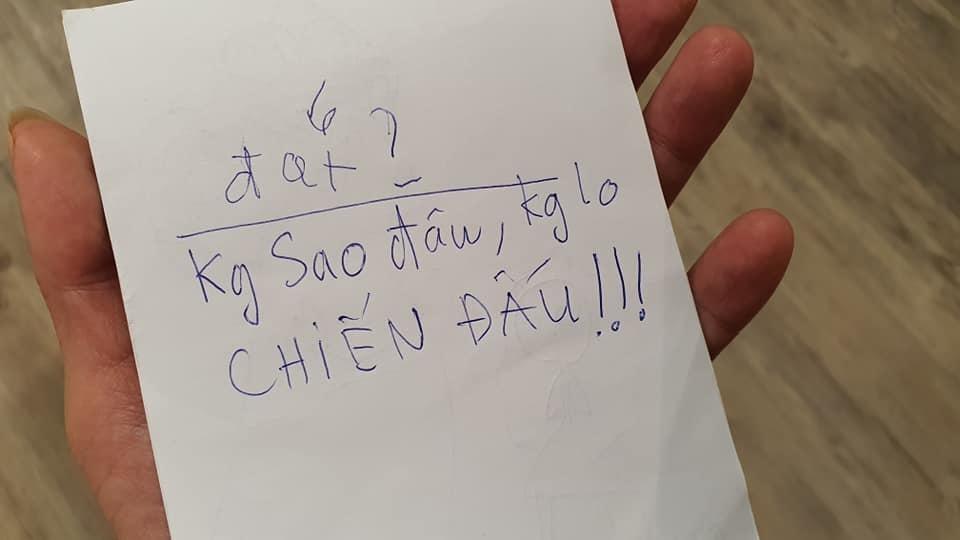 đat ?
kg Sao đâu, kg lo
CHIẾN ĐẤU!!!